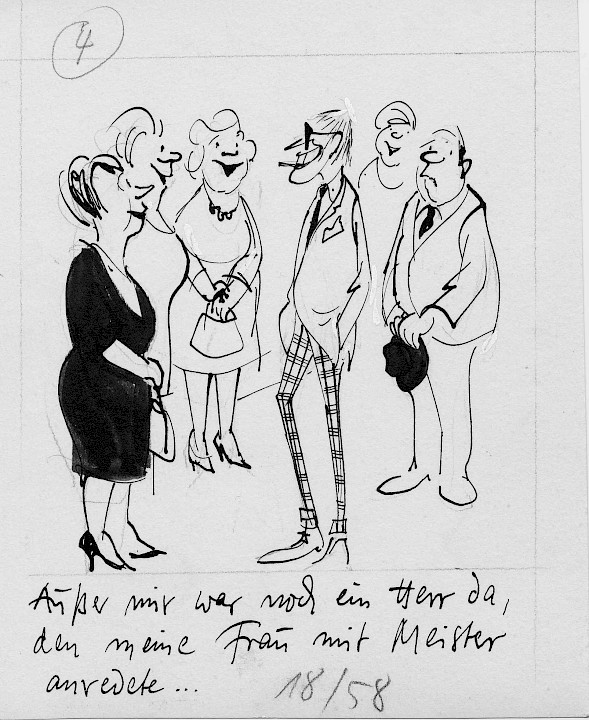 4
Außer mir war noch ein Herr da,
den meine Frau mit Meister
anredete...
18/58